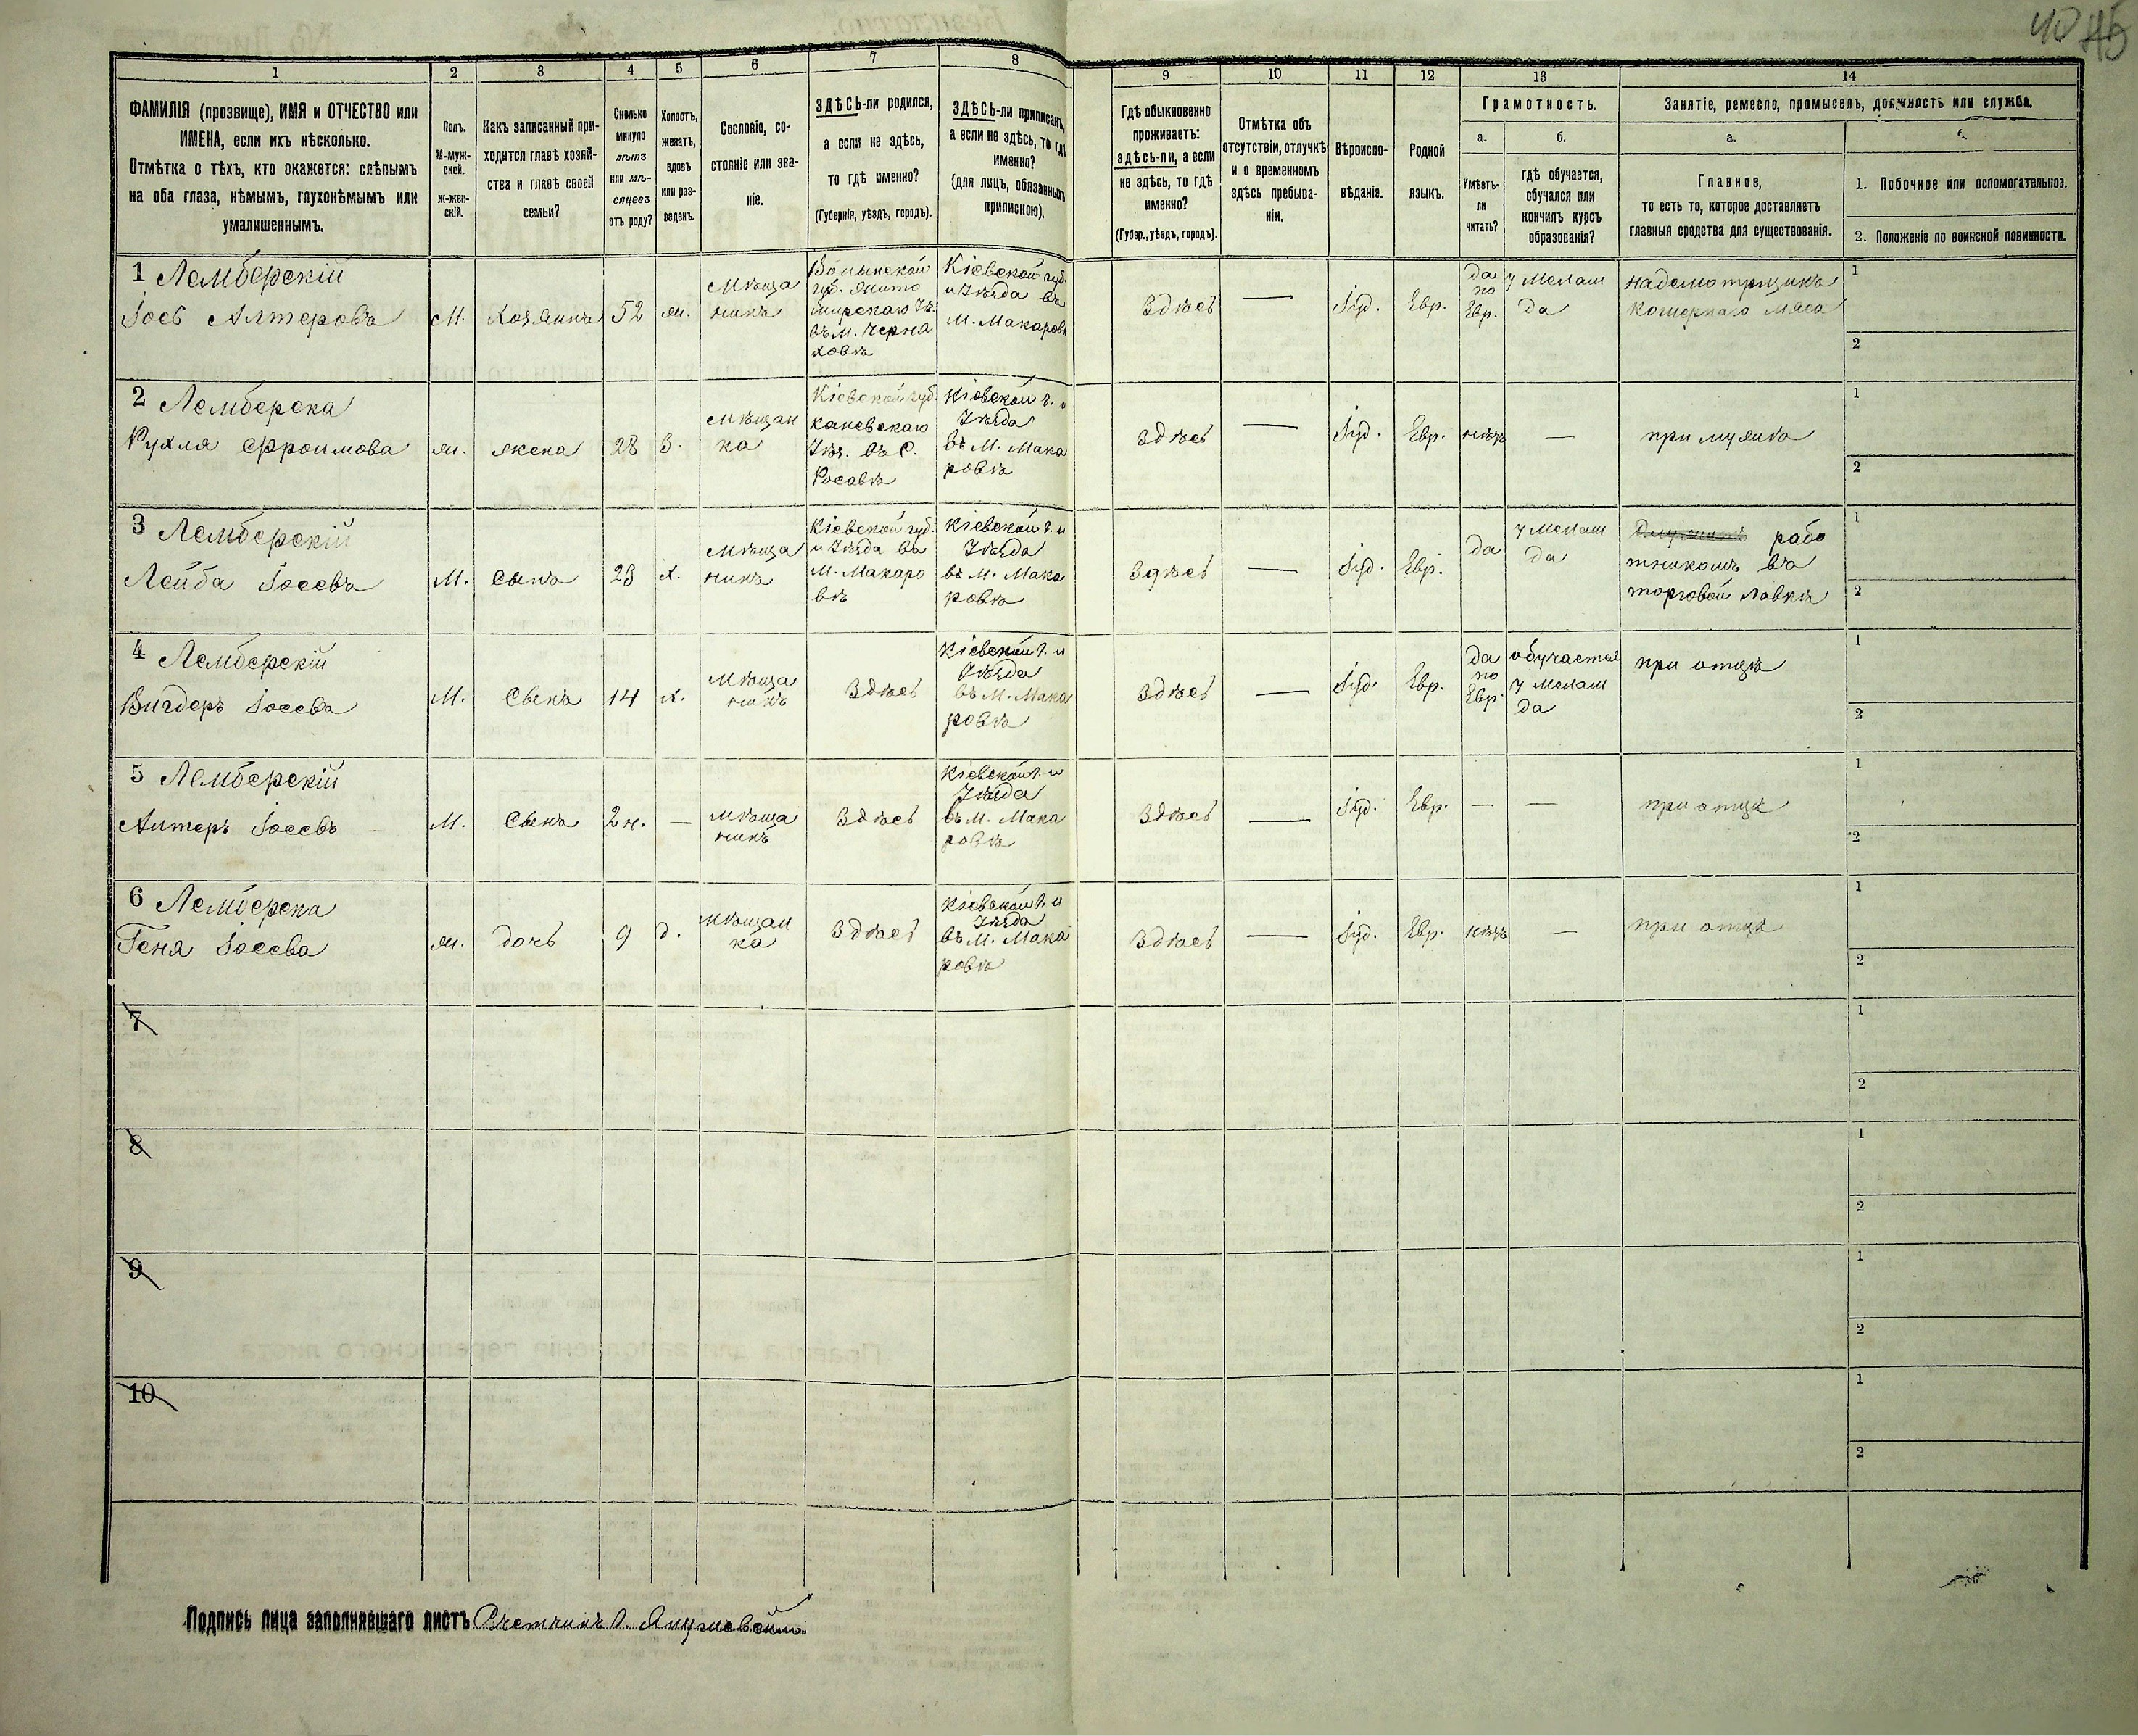 40 45
1 2 3 4 5 6 7 8 9 10 11 12 13 14
ФАМИЛІЯ (прозвище), ИМЯ и ОТЧЕСТВО или
ИМЕНА, если ихъ нѣсколько.
Отмѣтка о тѣхъ, кто окажется: слѣпымъ
на оба глаза, нѣмымъ, глухонѣмымъ или
умалишеннымъ.
Полъ.
М-муж-
ской.
Ж-жен-
скій.
Какъ записанный при-
ходится главѣ хозяй-
ства и главѣ своей
семьи?
Сколько
минуло
лѣтъ
или мѣ-
сяцевъ
отъ роду?
Холостъ,
женатъ,
вдовъ
или раз-
веденъ.
Сословіе, со-
стояніе или зва-
ніе.
ЗДѢСЬ-ли родился,
а если не здѣсь,
то гдѣ именно?
(Губернія, уѣздъ, городъ).
ЗДѢСЬ-ли приписанъ,
а если не здѣсь, то гдѣ
именно?
(для лицъ, обязанныхъ
припискою).
Гдѣ обыкновенно
проживаетъ:
здѣсь-ли, а если
не здѣсь, то гдѣ
именно?
(Губер., уѣздъ, городъ).
Отмѣтка объ
отсутствіи, отлучкѣ
и о временномъ
здѣсь пребыва-
ніи.
Вѣроиспо-
вѣданіе.
Родной
языкъ.
Грамотность.
а.
Умѣетъ-
ли
читать?
б.
гдѣ обучается,
обучался или
кончилъ курсъ
образованія?
Занятіе, ремесло, промыселъ, должность или служба.
а.
Главное,
то есть то, которое доставляетъ
главныя средства для существованія.
1. Побочное или вспомогательное.
2. Положеніе по воинской повинности.
1 Лемберскій
Іосъ Алтеровъ
М.
Хозяинъ
52
ж.
Мѣща
нинъ
Волынской
губ. Жито
мирскаго Уѣ.
въ М. Черня
ховѣ
Кіевской губ.
и Уѣзда въ
М. Макаровѣ
Здѣсь
—
Іуд.
Евр.
да
по
Евр.
у Мелам
да
надсмотрщикъ
кошернаго мяса
1
2
2 Лемберска
Рухля Сфроимова
ж.
жена
28
З.
мѣщан
ка
Кіевской губ.
каневскаго
Уѣз. въ С.
Росавѣ
Кіевской г. и
Уѣзда
въ М. Мака
ровѣ
Здѣсь
—
Іуд.
Евр.
нѣтъ
—
при мужѣ
1
2
3 Лемберскій
Лейба Іосевъ
М.
Сынъ
23
х.
Мѣща
нинъ
Кіевской губ.
и Уѣзда въ
М. Макаро
вѣ
Кіевской г. и
Уѣзда
въ М. Мака
ровѣ
Здѣсь
—
Іуд.
Евр.
да
у Мелам
да
рабо
тникомъ въ
торговой лавкѣ
1
2
4 Лемберскій
Вигдеръ Іосевъ
М.
Сынъ
14
х.
Мѣща
нинъ
Здѣсь
Кіевской г. и
Уѣзда
въ М. Мака
ровѣ
Здѣсь
—
Іуд.
Евр.
да
по
Евр.
обучается
у Мелам
да
при отцѣ
1
2
5 Лемберскій
Алтеръ Іосевъ
М.
Сынъ
2 н.
—
мѣща
нинъ
Здѣсь
Кіевской г. и
Уѣзда
въ М. Мака
ровѣ
Здѣсь
—
Іуд.
Евр.
—
—
при отцѣ
1
2
6 Лемберска
Геня Іосева
ж.
дочь
9
д.
мѣщан
ка
Здѣсь
Кіевской г. и
Уѣзда
въ М. Мака
ровѣ
Здѣсь
—
Іуд.
Евр.
нѣтъ
—
при отцѣ
1
2
7
1
2
8
1
2
9
1
2
10
1
2
Подпись лица заполнявшаго листъ